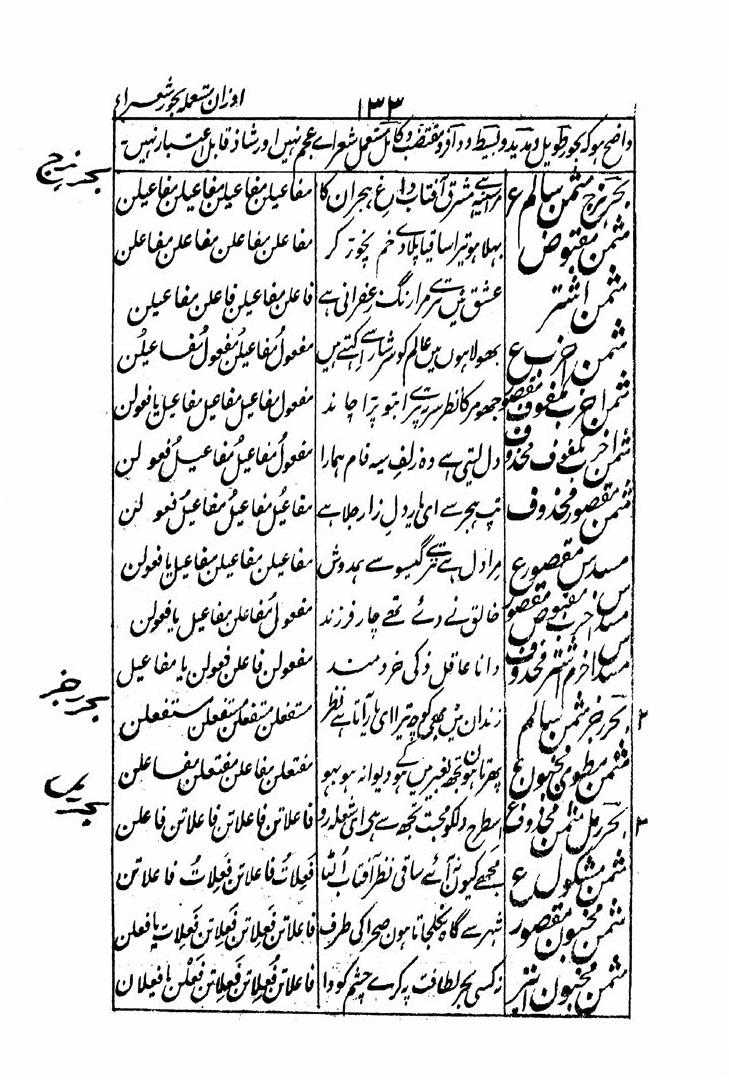 ۱۳۳
اوزان مستعملہ بحور شعراء
واضح ہو کہ بحور طویل و مدید و بسیط و وافر و مقتضب و کامل مستعمل شعراے عجم نہیں اور شاذ قابل اعتبار نہیں۔
بحر ہزج
بحر ہزج مثمن سالم ع مرا سینہ ہے مشرق آفتاب داغ ہجراں کا مفاعیلن مفاعیلن مفاعیلن مفاعیلن
مثمن مقبوض بھلا ہو تیرا ساقیا پلادے خم نچوڑ کر مفاعلن مفاعلن مفاعلن مفاعلن
مثمن اشتر عشق میں ترے مرا رنگ زعفرانی ہے فاعلن مفاعیلن فاعلن مفاعیلن
مثمن اخرب ع بھولا ہوں میں عالم کو سرشار اسے کہتے ہیں مفعولُ مفاعیلن مفعولُ مفاعیلُن
مثمن اخرب مکفوف مقصور جھومر کا نظر سر پہ ترے اب تو پڑا چاند مفعول مفاعیل مفاعیل مفاعیل یا فعولن
مثمن اخرب مکفوف محذوف دل لیتی ہے وہ زلف سیہ فام ہمارا مفعولُ مفاعیلُ مفاعیلُ فعولن
مثمن مقصور محذوف تپ ہجر سے ای یار دل زار جلا ہے مفاعیلُ مفاعیلُ مفاعیلُ فعولن
مسدس مقصور ع مرا دل ہے ترے گیسو سے ہمدوش مفاعیلن مفاعیلن مفاعیل یا فعولن
مسدس اخرب مقبوض مقصور خالق نے دئے تھے چار فرزند مفعولُ مفاعلن مفاعیل یا فعولن
مسدس اخرم اشتر محذوف دانا عاقل ذکی خردمند مفعولن فاعلن فعولن یا مفاعیل
بحر رجز
۲ بحر رجز مثمن سالم زندان میں بھی کوچہ ترا ای یار آتا ہے نظر مستفعلن مستفعلن مستفعلن مستفعلن
مثمن مطوی مخبون ع پھرتا ہوں تجھ بغیر میں ہو کے دیوانہ ہو بہو مفتعلن مفاعلن مفتعلن مفاعلن
بحر رمل
۳ بحر رمل مثمن محذوف ع اسطرح دلکو محبت تجھ سے ہی ای شعلہ رو فاعلاتن فاعلاتن فاعلاتن فاعلن
مثمن مشکول ع مجھے کیوں نہ آئے ساقی نظر آفتاب الٹا فَعِلاتُ فاعلاتن فَعِلاتُ فاعلاتن
مثمن مخبون مقصور شہر سے گاہ نکلجاتا ہوں صحرا کی طرف فاعلاتن فَعِلاتن فَعِلاتن فَعِلات یا فعلن
مثمن مخبون ابتر نہ کسی بحر لطافت پہ کرے چشم کو وا فاعلاتن فَعِلاتن فَعِلاتن فَعْلن یا فعلان